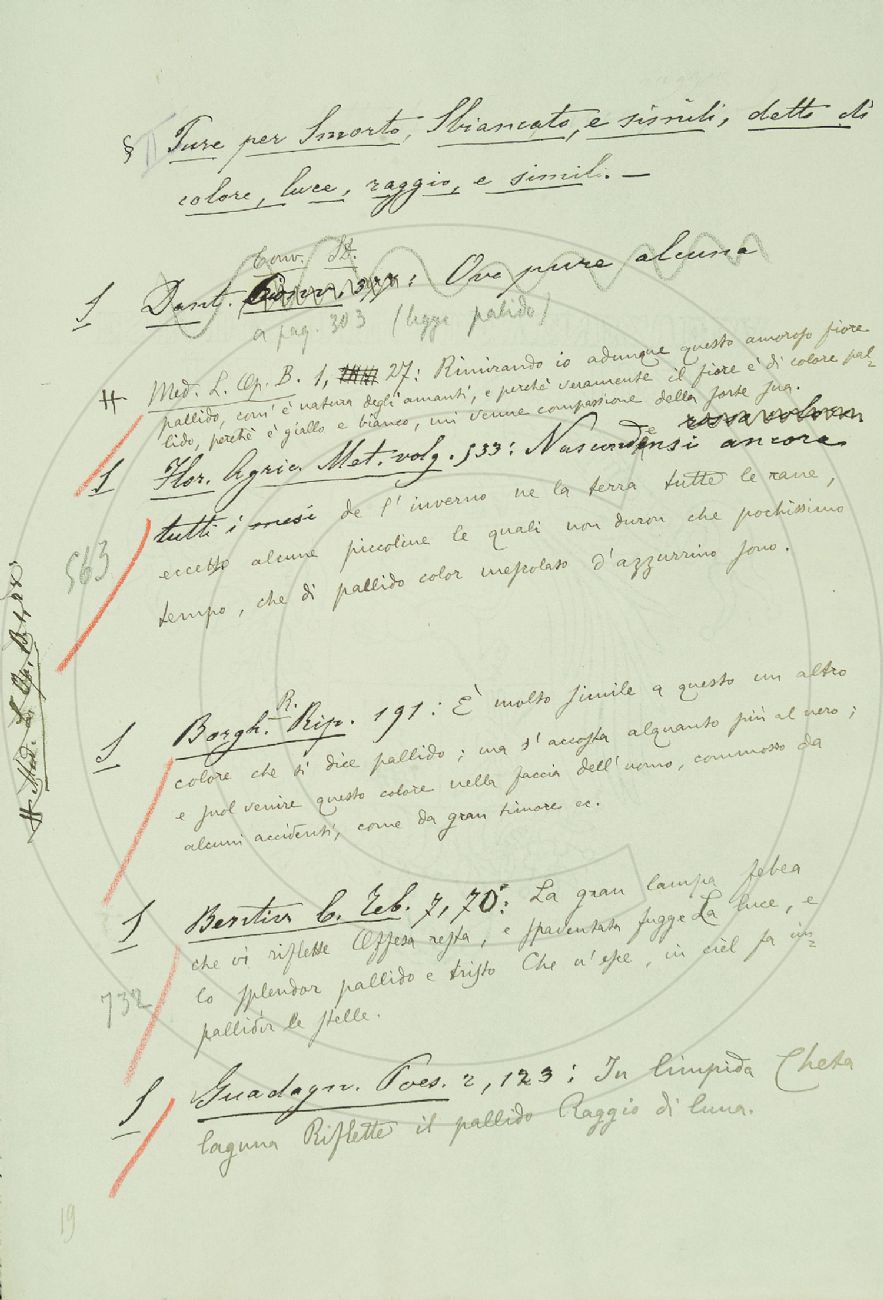 § II Pure per Smorto, Sbiancato, e simili, detto di
colore, luce, raggio, e simili. —
Conv. St.
S Dant. Conv. 377: Ove pure alcuna
a pag. 303 (legge palido)
# Med. L. Op. B. 1, 27: Rimirando io adunque questo amoroso fiore
pallido, com' è natura degli amanti, e perchè veramente il fiore è di colore pal=
lido, perchè è giallo e bianco, mi venne compassione della sorte sua.
S Flor. Agric. Met. volg. 533: Nascondensi ancora
tutti i mesi de l' inverno ne la terra tutte le rane,
eccetto alcune piccoline le quali non duron che pochissimo
563
tempo, che di pallido color mescolato d'azzurrino sono.
# Med. L. Op. B. 1,
S Borgh. R. Rip. 191: È molto simile a questo un altro
colore che si dice pallido; ma s' accosta alquanto più al nero;
e suol venire questo colore nella faccia dell' uomo, commosso da
alcuni accidenti, come da gran timore ec.
S Bentiv. C. Teb. 7, 70: La gran lampa febea
che vi riflette Offesa resta, e spaventata fugge La luce, e
732
lo splendor pallido e tristo Che n' esce, in ciel fa im=
pallidir le stelle.
S Guadagn. Poes. 2, 123: In limpida Cheta
laguna Riflette il pallido Raggio di luna.
19